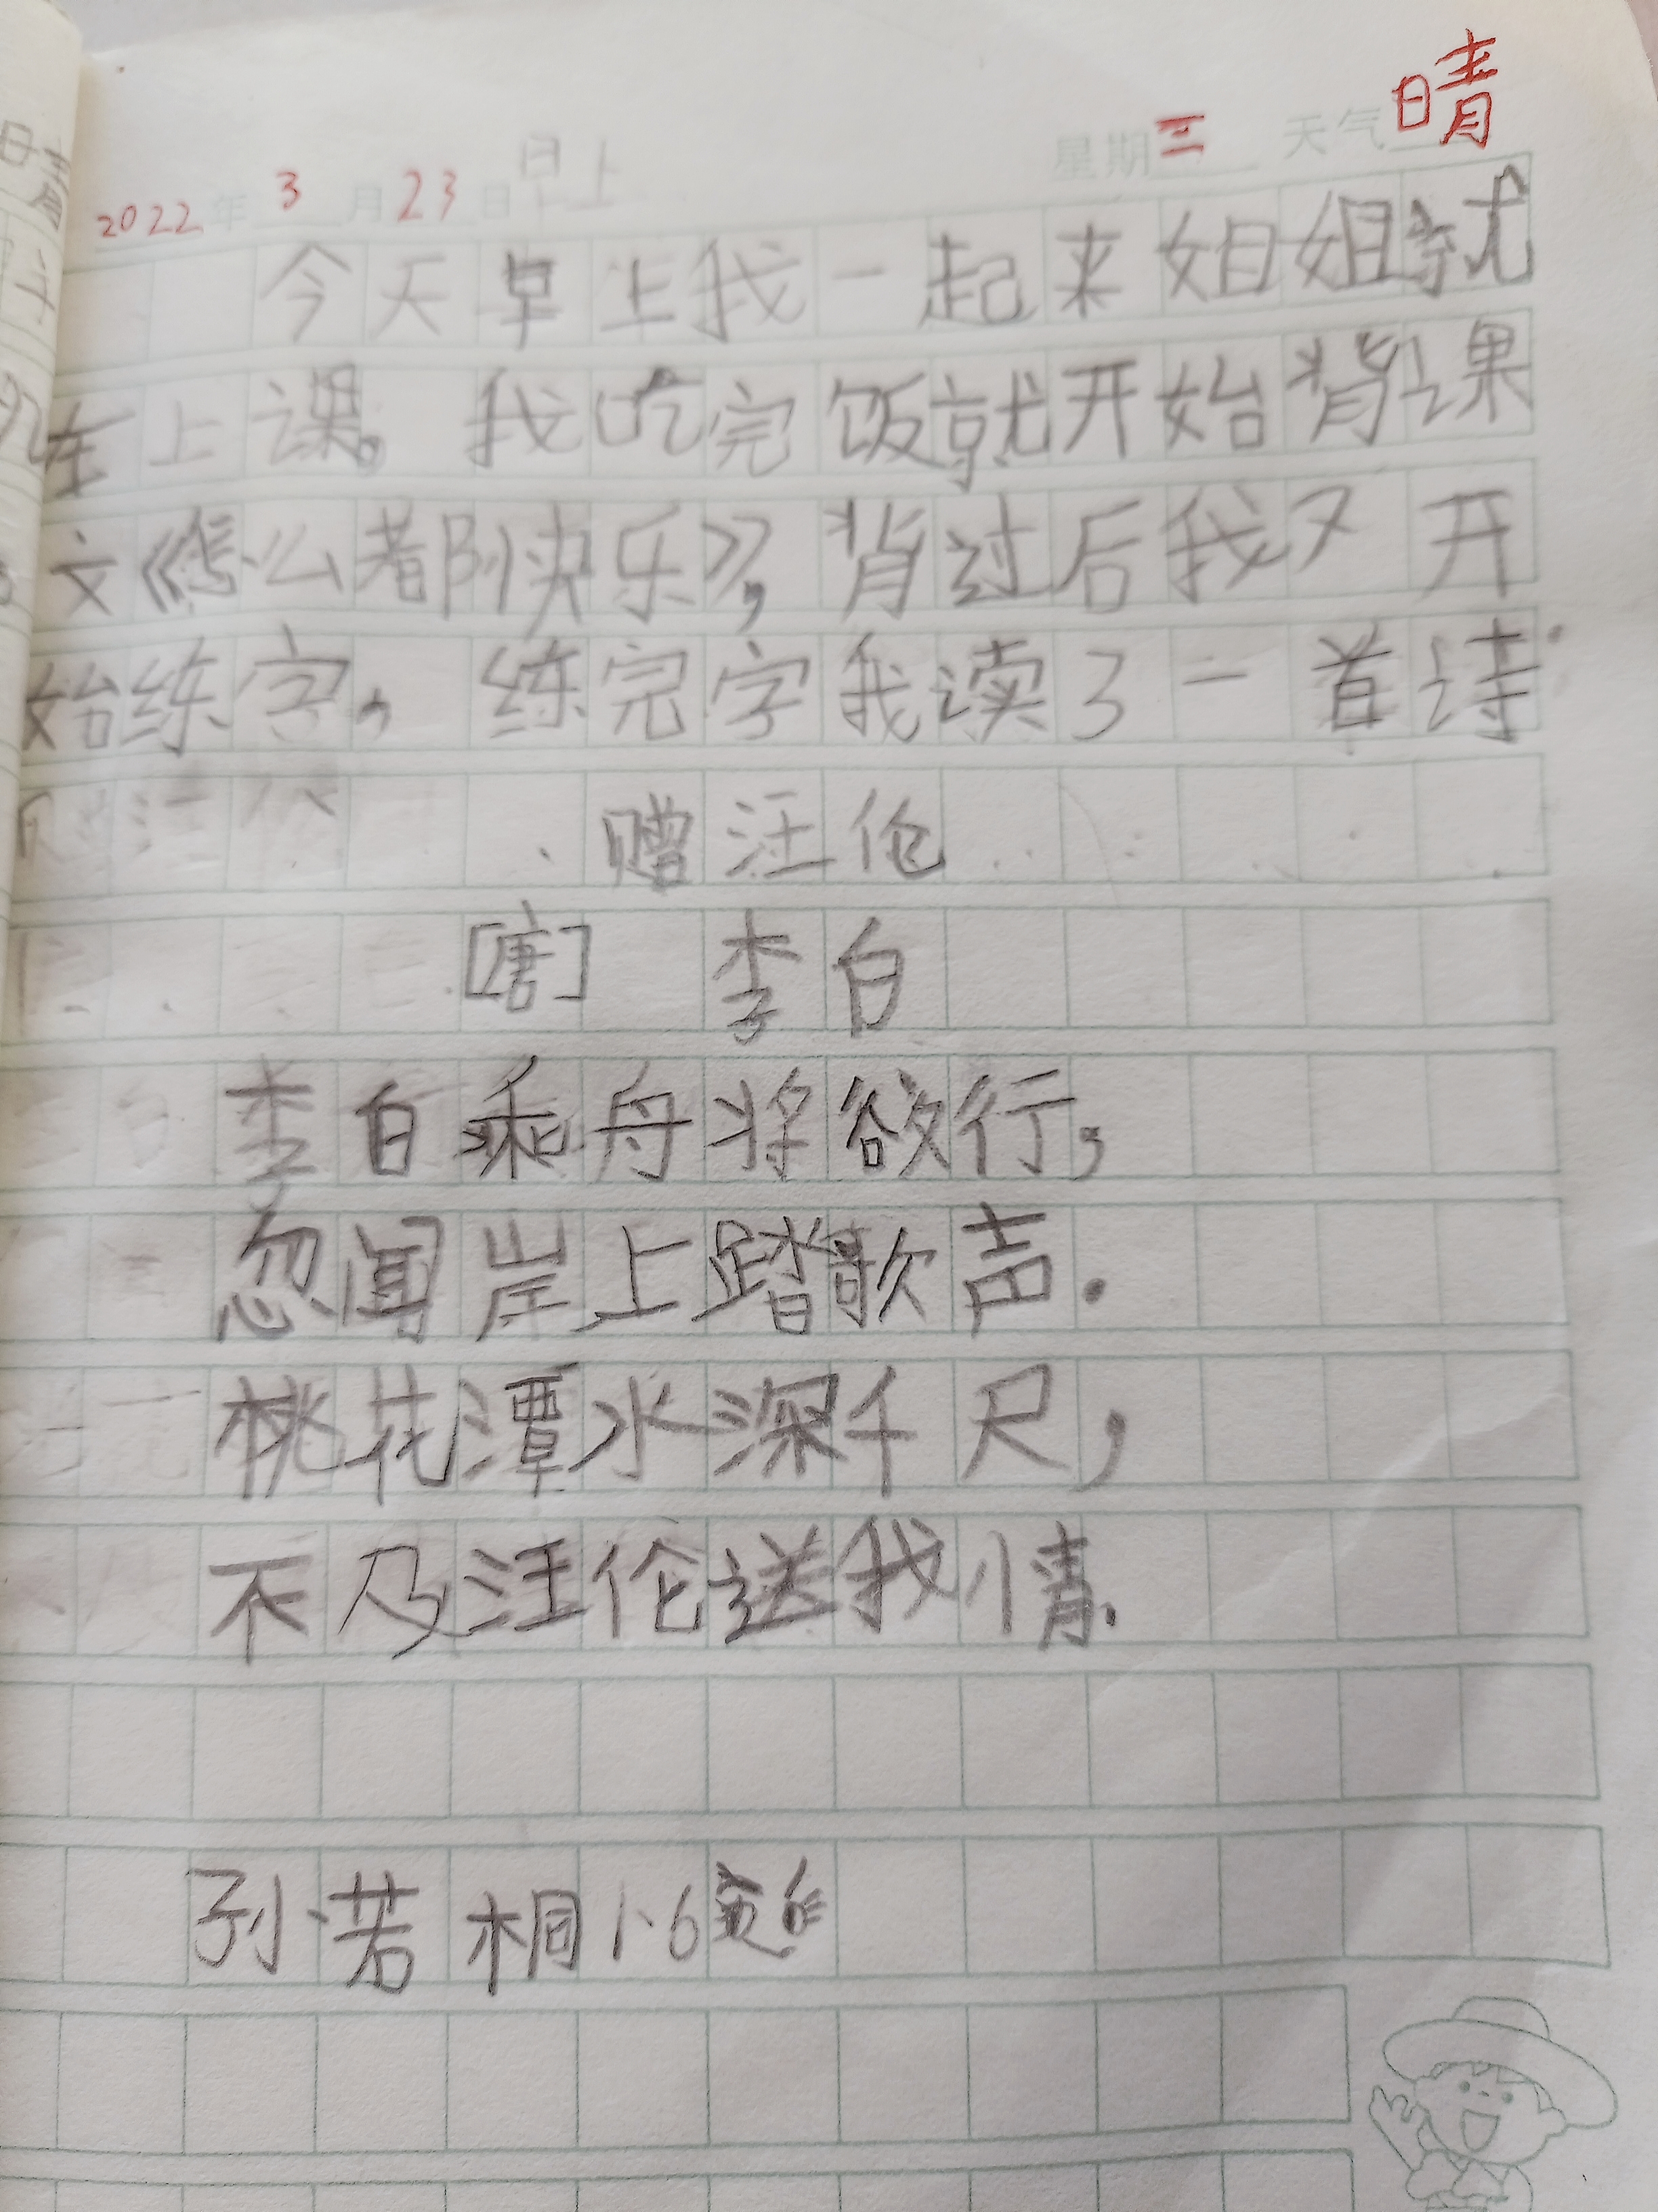 2022年3月23日 早上 星期三 天气 晴
今天早上我一起来姐姐就
在上课。我吃完饭就开始背课
文《怎么都快乐》，背过后我又开
始练字，练完字我读了一首诗
赠汪伦
[唐] 李白
李白乘舟将欲行，
忽闻岸上踏歌声.
桃花潭水深千尺，
不及汪伦送我情.
孙若桐1.6